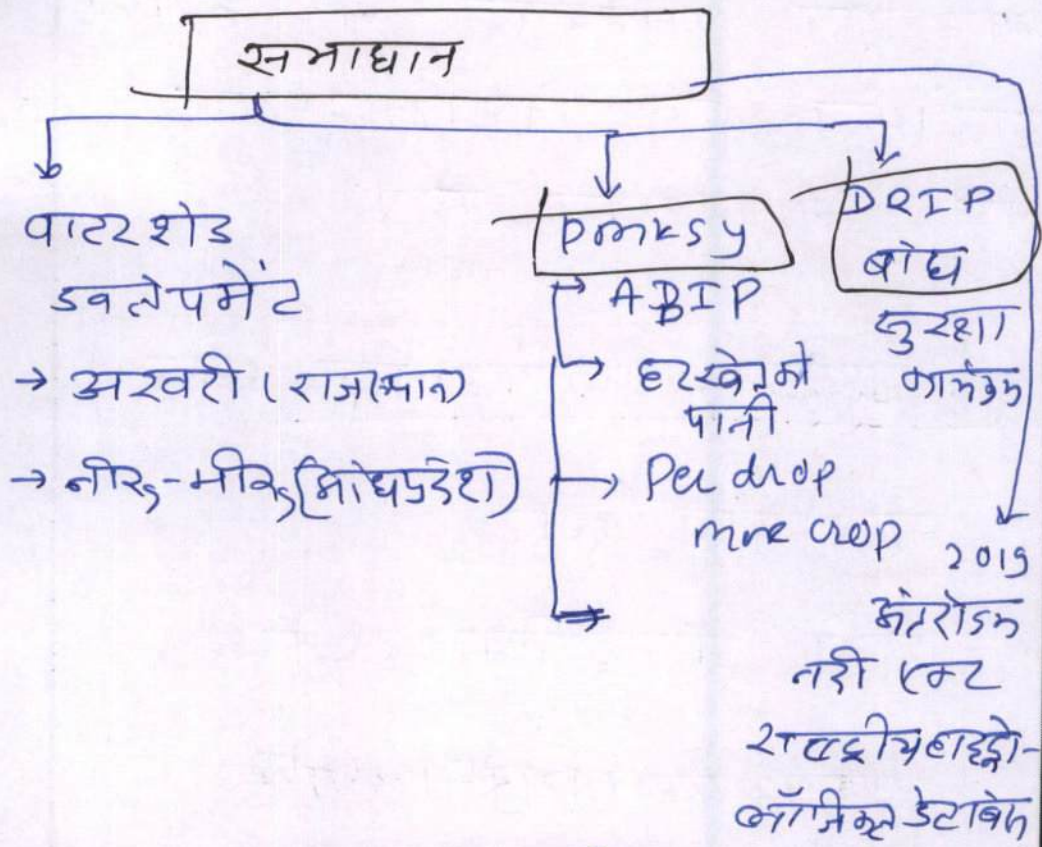 समाधान
वाटर शेड
डवलेपमेंट
→ अरवरी (राजस्थान)
→ नीरू-मीरू (आंध्रप्रदेश)
PMKSY
→ ABIP
→ हर खेत को
पानी
→ Per drop
more crop
DRIP
बांध
सुरक्षा
कार्यक्रम
2019
अंतरराज्यीय
नदी एक्ट
राष्ट्रीय हाइड्रो-
लॉजिकल डेटाबेस